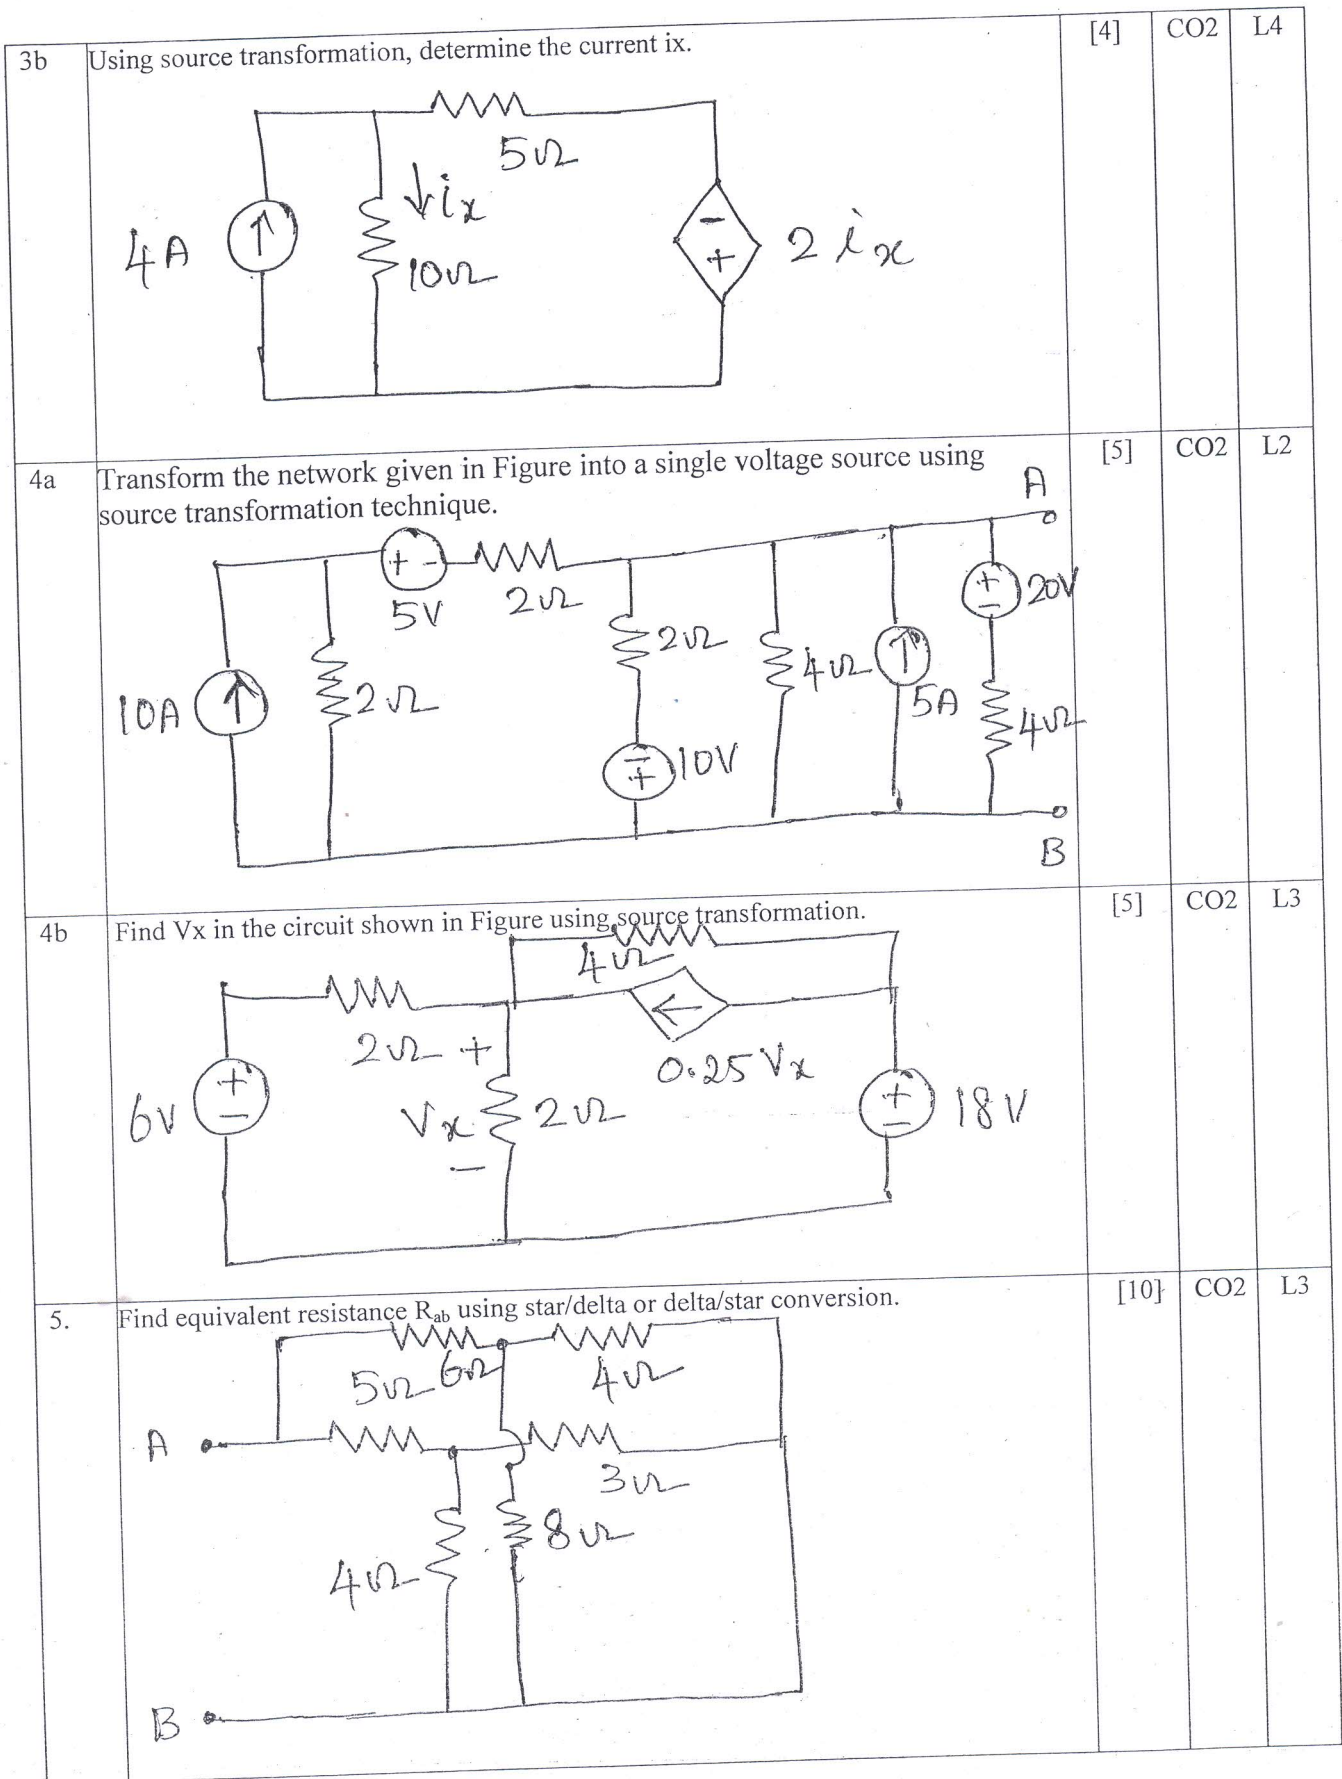 3b Using source transformation, determine the current ix. [4] CO2 L4
5Ω
↓ix
4A
10Ω
- +
2ix
4a Transform the network given in Figure into a single voltage source using [5] CO2 L2
source transformation technique.
A
+ -
5V
2Ω
+ -
20V
2Ω
4Ω
10A
2Ω
5A
4Ω
- +
10V
B
4b Find Vx in the circuit shown in Figure using source transformation. [5] CO2 L3
4Ω
2Ω +
0.25Vx
+ -
6V
Vx
2Ω
+ -
18V
-
5. Find equivalent resistance Rab using star/delta or delta/star conversion. [10} CO2 L3
5Ω 6Ω
4Ω
A
3Ω
8Ω
4Ω
B